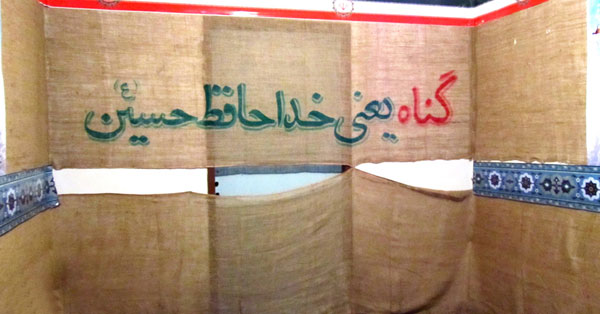 گناه یعنی خداحافظ حسین (ع)